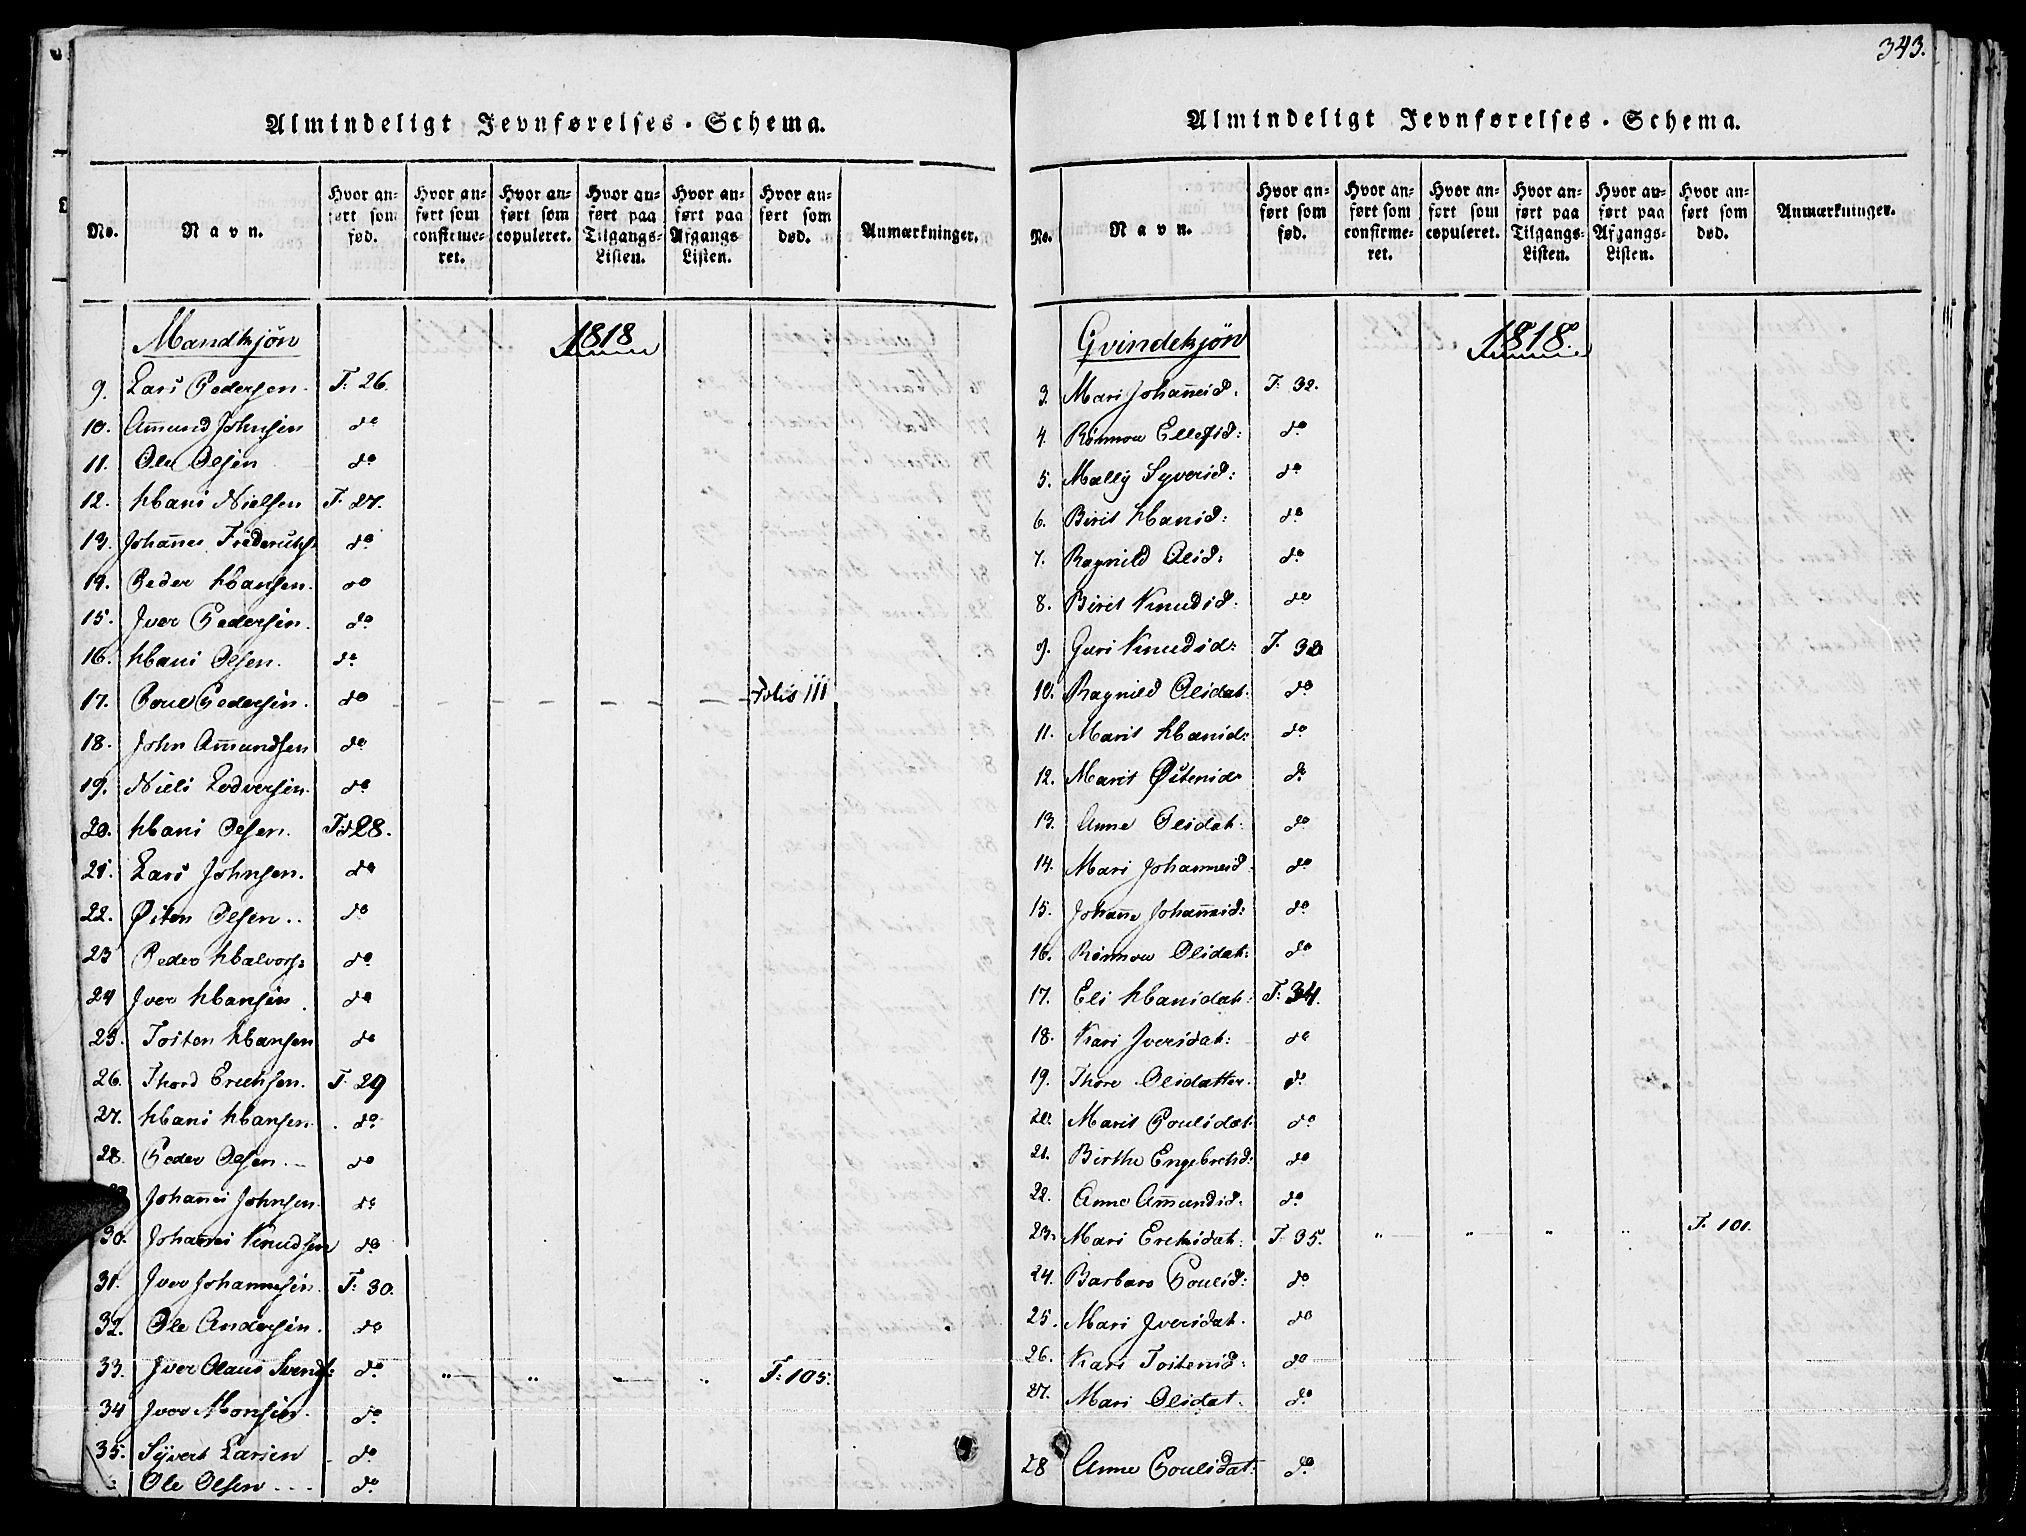 343.
Almindeligt Jevnførelses-Schema.
No.
Navn.
Hvor anført som fød.
Hvor anført som confirmeret.
Hvor anført som copuleret.
Hvor anført paa Tilgangs-Listen.
Hvor anført paa Afgangs Listen.
Hvor anført som død.
Anmærkninger.
Mandkjøn 1818
9. Lars Pedersen. F. 26.
10. Am̄und Johnsen do
11. Ole Olsen do
12. Hans Nielsen F. 27.
13. Johan̄es do
14. Peder Hansen. do
15. Iver Pedersen. do
16. Hans Olsen. do
17. Poul Pedersen. do Folio 111
18. John Am̄undsen do
19. Niels Lodversen. do
20. Hans Olsen. F. 28.
21. Lars Johnsen. do
22. Østen Olsen.. do
23 Peder Halvors: do
24 Iver Hansen. do
25. Tosten Hansen do
26. Thord Erichsen. F. 29
27. Hans Hansen. do
28. Peder Olsen. do
Johan̄es Johnsen. do
30. Johan̄es Knudsen do
31. Iver Johannesen. F: 30.
32. Ole Andersen. do
33. Iver Olaus Svends: do " " " F: 105.
34 Iver Monsen. do
35. Syvert Larsen do
Ole Olsen do
Almindeligt Jevnførelses-Schema.
No.
Navn.
Hvor anført som fød.
Hvor anført som confirmeret.
Hvor anført som copuleret.
Hvor anført paa Tilgangs-Listen.
Hvor anført paa Afgangs-Listen.
Hvor anført som død.
Anmærkninger.
Qvindekjøn 1818.
3. Mari Johan̄esd. F: 32.
4. Rønnou Ellefsd: do
5. Mally Syversd: do
6. Birit Hansd: do
7. Ragnild Olsd: do
8. Birit Knudsd: do
9. Guri Knudsd: F. 33
10. Ragnild Olsdat: do
11. Marit Hansd: do
12. Marit Østensd: do
13. Anne Olsdat: do
14. Mari Johannesd: do
15. Johan̄e Johan̄esd: do
16. Rønnou Olsdat: do
17. Eli Hansdat: F: 34.
18. Kari Iversdat: do
19. Thore Olsdatter. do
20. Marit Poulsdat: do
21. Birthe Engebretsd: do
22. Anne Am̄undsd. do
23. Mari Erchsdat: F. 35. " " " " F. 101.
24. Barbaro Poulsd: do
25. Mari Iversdat. do
26. Kari Tostensd: do
27. Mari Olsdat. do
28 Anne Poulsdat: do